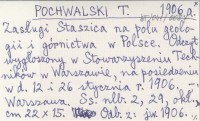 POCHWALSKI T. 1906.a.
Zasługi Staszica na polu geolo-
gii i górnictwa w Polsce. Odczyt
wygłoszony w Stowarzyszeniu Tech-
ników w Warszawie, na posiedzeniu
w d. 12 i 26 stycznia r. 1906,
Warszawa. Ss. nlb. 2, 29, okł.
cm 22 x 15. Odb. z: jw. 1906.